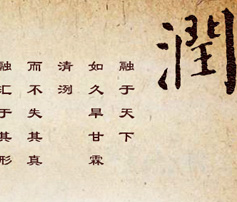 潤
融于天下
如久旱甘霖
清洌
而不失其真
融汇于其形